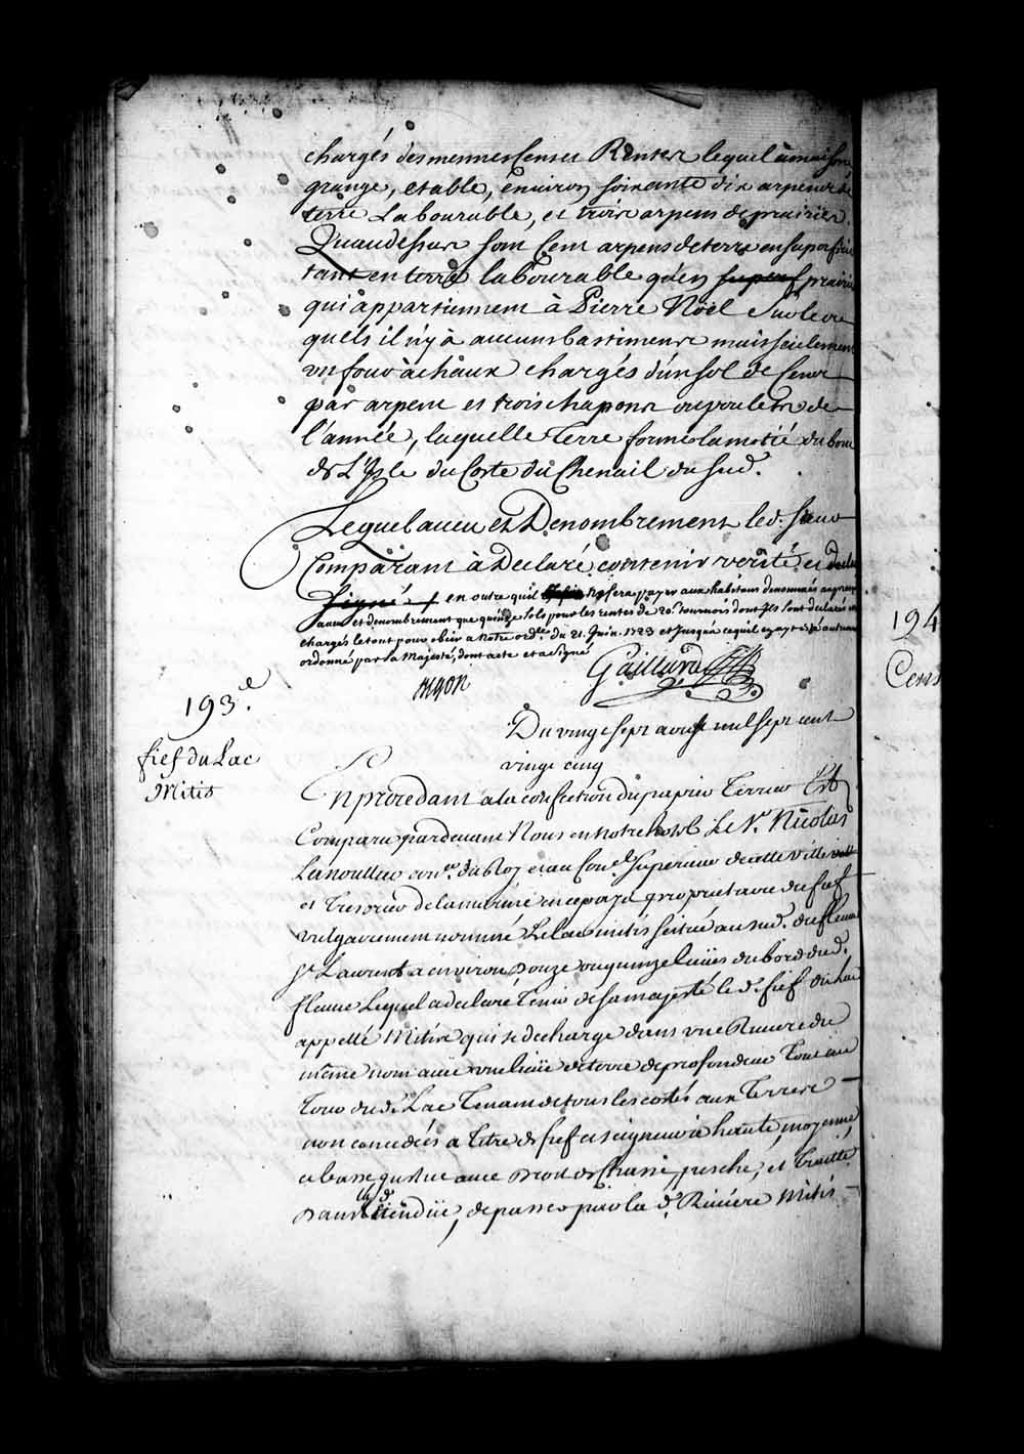 chargés des mesmes Cens et Rentes lequel à maison
grange, etable, environ soixante dix arpens de
terre Labourable, et trois arpens de prairies.
Qu'audessus sont Cent arpens de terre en superficie
tant en terre labourable qu'en prairie
qui appartiennent à Pierre Nöel sur les
quels il n'y à aucuns bastimens mais seulement
un four à chaux chargés d'un sol de Cens
par arpent et trois chapons ou poulets de
l'année, laquelle Terre forme la motié du bout
de L'Isle du Costé du Chenail du Sud.
Lequel aveu et Denombrement led. Sieur
Comparant à Declaré contenir verité et
signé en outre quil Ne sera payer aux habitans denommés au present
aveu et denombrement que quinze sols pour les rentes de 20s. tournois dont Ils sont declarés
chargés le tout pour obeir a Notre ordce. du 21. Juin 1723 et Jusqua ce quil en ayt esté autrement
ordonné par sa Majesté, dont acte et a signé
Begon
Gaillard
193.e
fief du Lac
Mitis
Du vingt sept aoust mil sept cent
vingt cinq
En procedant a la confection du papier Terrier Est
Comparu pardevant Nous en Notre hotel Le Sr. Nicolas
Lanoullier conr. du Roy et au Conel. Superieur de cette ville
et Tresorier de la marine en ce pays proprietaire du fief
vulgairement nommé Le lac mitis scitué au sud. du fleuve
St. Laurent a environ Douze ou quinze lieües du bord dud.
fleuve Lequel a declaré Tenir de sa majesté le d. fief du Lac
appellé Mitis qui se decharge dans une Riviere du
même nom avec une lieüe de terre de profondeur Tout au
Tour dud. Lac Tenant de tous les costés aux Terres
non concedées a Titre de fief et seigneurie haute, moyenne,
et basse justice avec Droit de Chasse, pesche, et Traitte
Dans lad. Etendüe, de passer par la d. Riviere Mitis
194
Cens